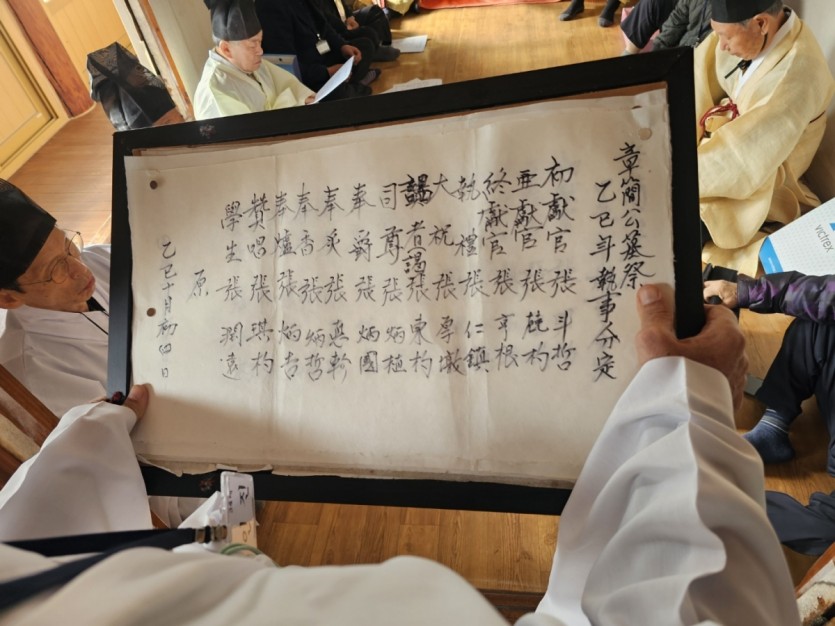 章簡公墓祭
乙巳年執事分定
初獻官 張 斗哲
亜獻官 張 杓
終獻官 張 亨根
執禮 張 仁鎮
大祝 張 厚墩
謁者 張 東杓
司尊 張 炳植
奉爵 張 炳國
奉炙 張
奉香 張 炳哲
奉爐 張 炳吉
贊唱 張 琪杓
學生 張 潤遠
原
乙巳十月初四日
victrex